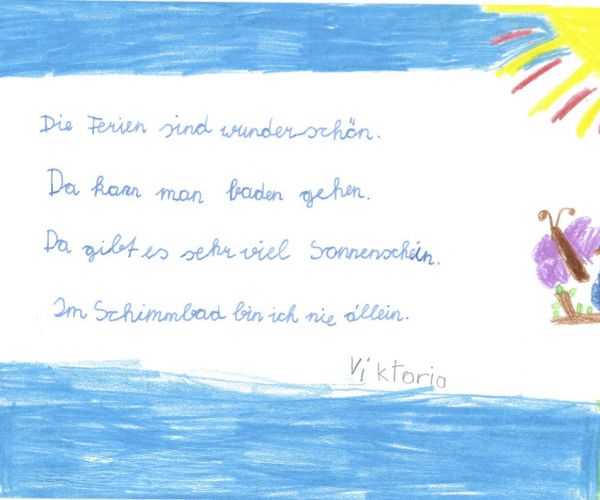 Die Ferien sind wunderschön.
Da kann man baden gehen.
Da gibt es sehr viel Sonnenschein.
Im Schimmbad bin ich nie allein.
Viktoria